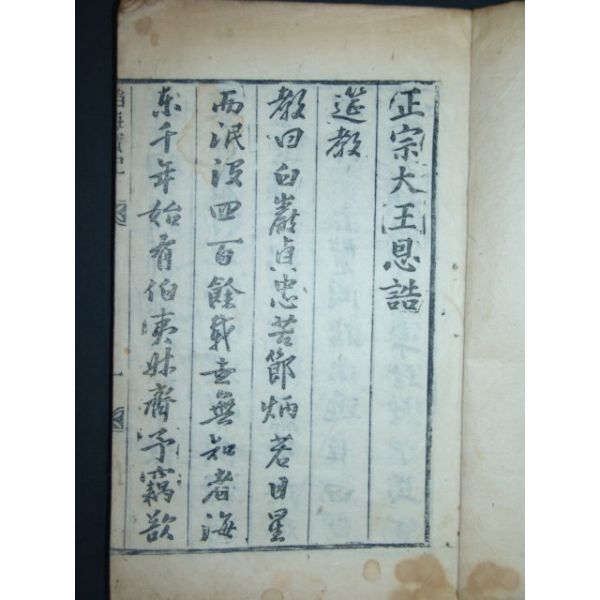 正宗大王恩誥
筵教
教曰白巖貞忠苦節炳若日星
而泯没四百餘載世無知者海
東千年始有伯夷叔齊予竊歆